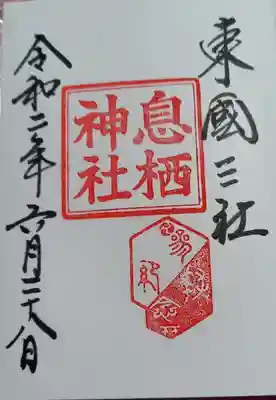 東國三社
息栖
神社
参拝
記念
令和二年六月二十八日